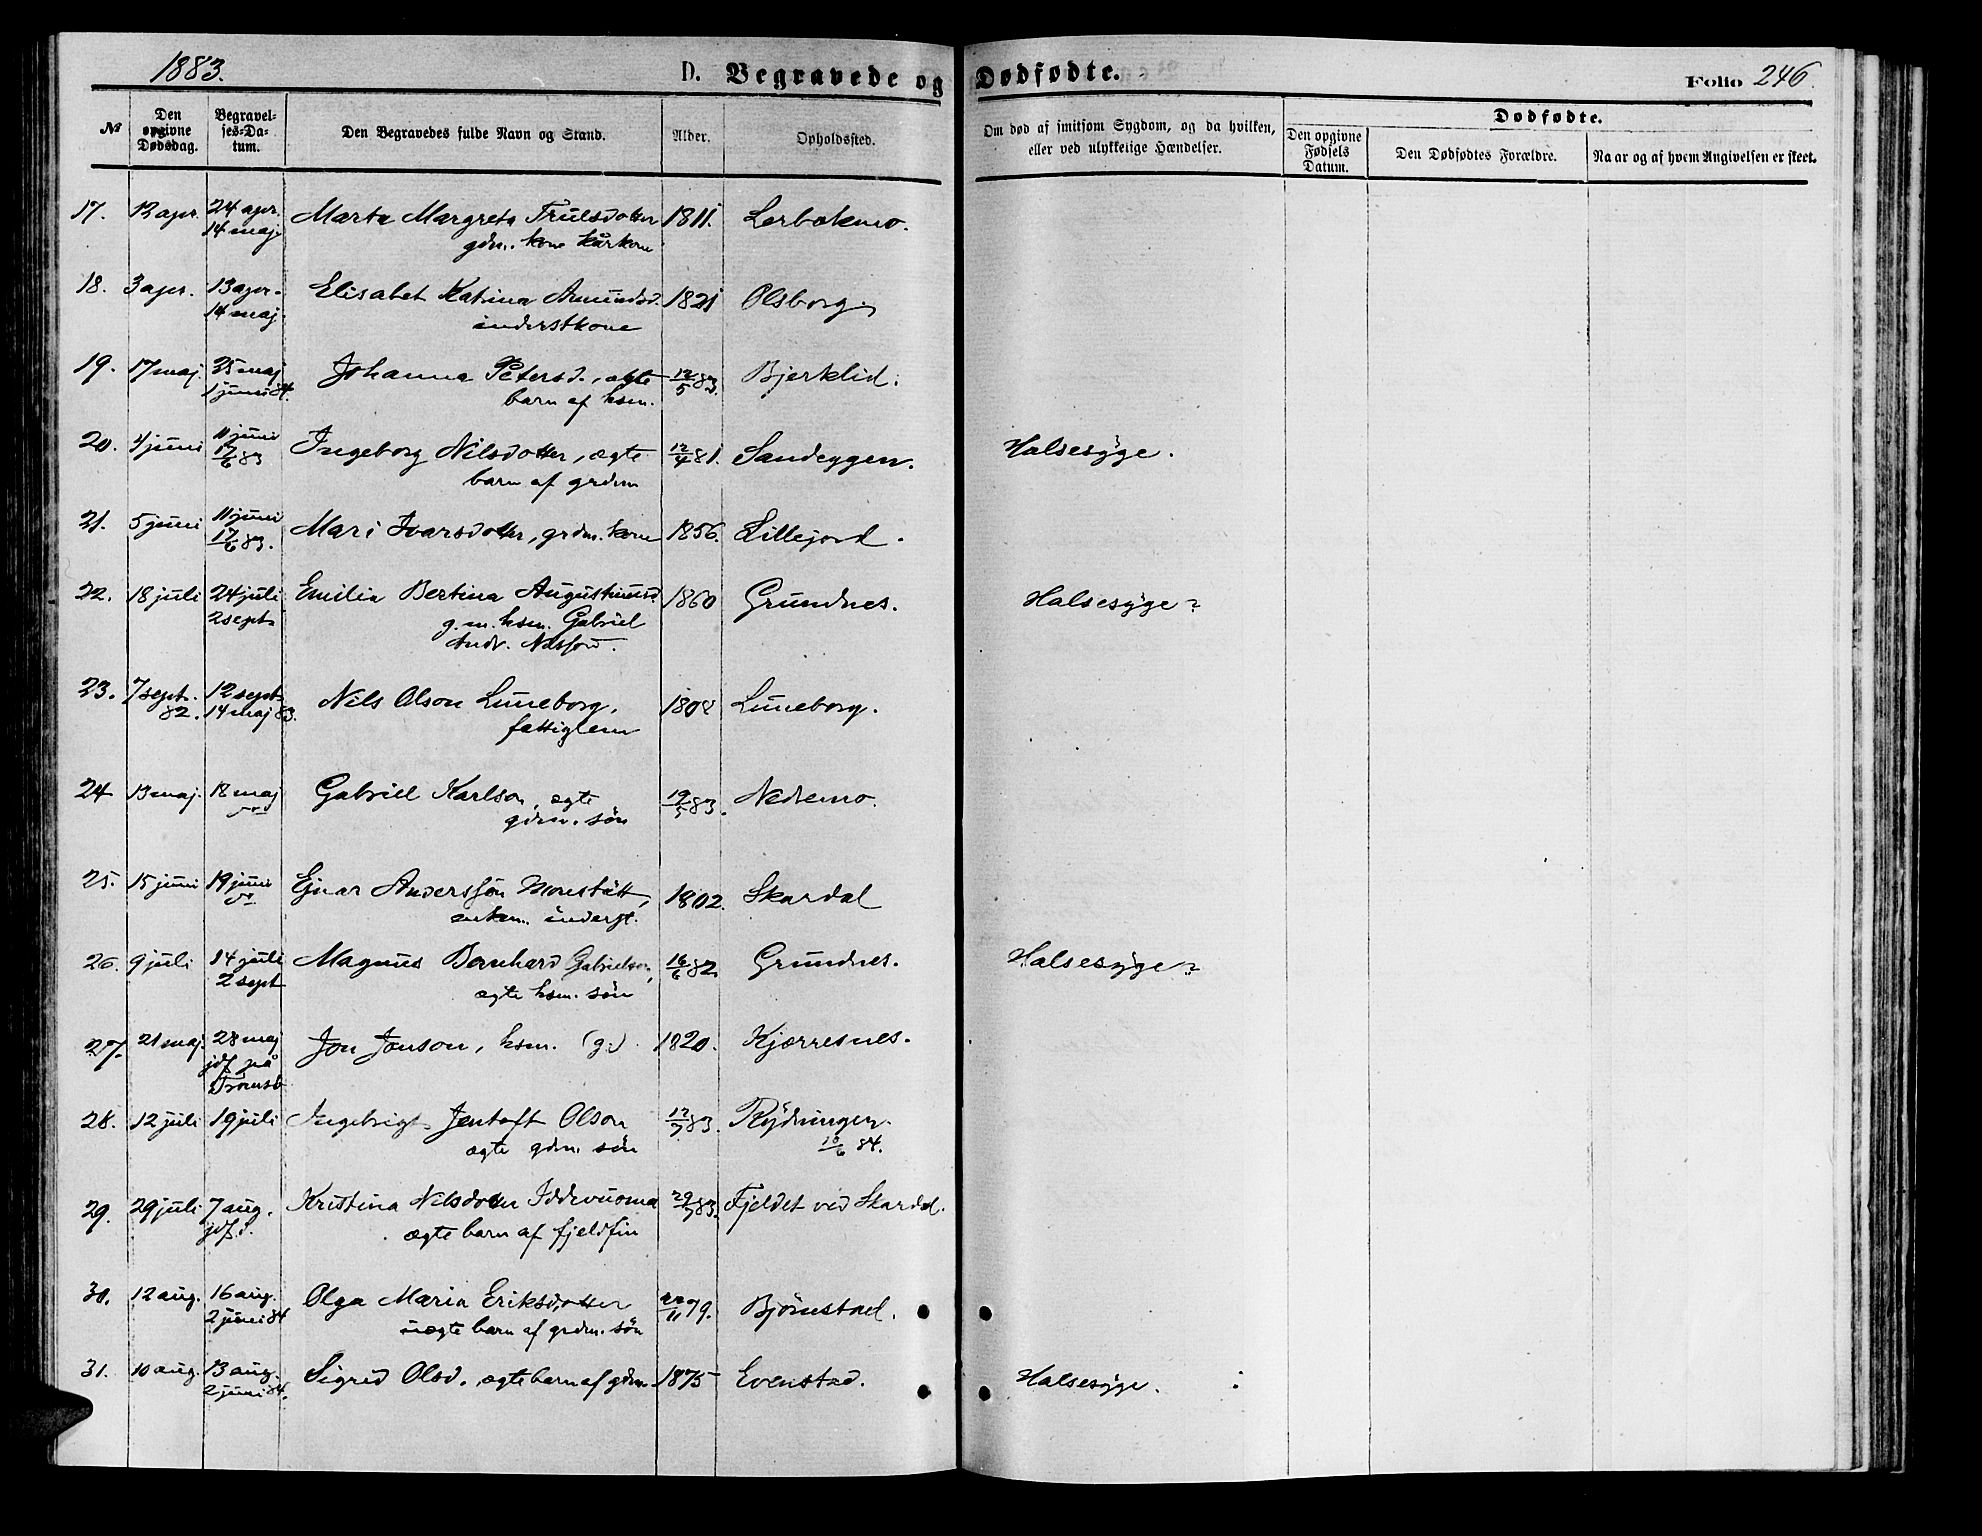 1883.
D. Begravede og Dødfødte.
Folio 246.
№
Den opgivne Dødsdag.
Begravel-ses-Da-tum.
Den Begravedes fulde Navn og Stand.
Alder.
Opholdssted.
Om død af smitsom Sygdom, og da hvilken, eller ved ulykkelige Hændelser.
Dødfødte.
Den opgivne Fødsels Datum.
Den Dødfødtes Forældre.
Naar og af hvem Angivelsen er skeet.
17. 12 apr. 24 apr. Marta Margreta Trulsdotter 1811. Lerbakmo.
14 maj gdm. kone kårkone
18. 3 apr. 13 apr. Elisabet Katrina Amundsd. 1821 Olsborg
14 maj. inderstkone
19. 17 maj. 25 maj Johanna Petersd., ægte 12/5 83. Bjerklid.
1 juni 84. barn af hsm.
20. 4 juni 11 juni Ingeborg Nilsdotter, ægte 12/4 81. Sandeggen. Halsesyge.
17/6 83 barn af grdm
21. 5 juni 11 juni Mari Ivarsdotter, grdm. kone 1856. Lillejord.
17/6 83.
22. 18 juli 24 juli Emilia Bertina Augustinusd. 1860 Grundnes. Halsesyge?
2 sept. g. m. hsm. Gabriel
Andr. Nilsson.
23. 7 sept. 12 sept. Nils Olson Luneborg, 1808 Luneborg.
82. 14 maj 83. fattiglem
24 13 maj. 18 maj Gabriel Karlson, ægte 19/5 83. Nedremo.
gdm. søn
25. 15 juni 19 juni Ejnar Andersson Monstått, 1802. Skardal
enkem. inderst.
26. 9 juli 14 juli Magnus Bernhard Gabrielson, 16/6 82 Grundnes. Halsesyge?
2 sept ægte hsm. søn
27. 21 maj. 28 maj Jon Jonson, hsm. (g.) 1820. Kjærresnes.
jdf. på
Tromsö
28. 12 juli 19 juli Ingebrigt Jentoft Olson 12/7 83. Rydningen.
ægte gdm. søn 10/6 84.
29. 29 juli 7 aug. Kristina Nilsdotter Iddevuoma 29/7 83. Fjeldet ved Skardal.
jdf. ægte barn af fjeldfin
30. 12 aug. 16 aug. Olga Maria Eriksdotter 22/11 79. Bjørnstad.
2 juni 84 uægte barn af grdm. søn
31. 10 aug. 13 aug. Sigrid Olsd., ægte barn af gdm. 1875 Evenstad. Halsesyge.
2 juni 84.